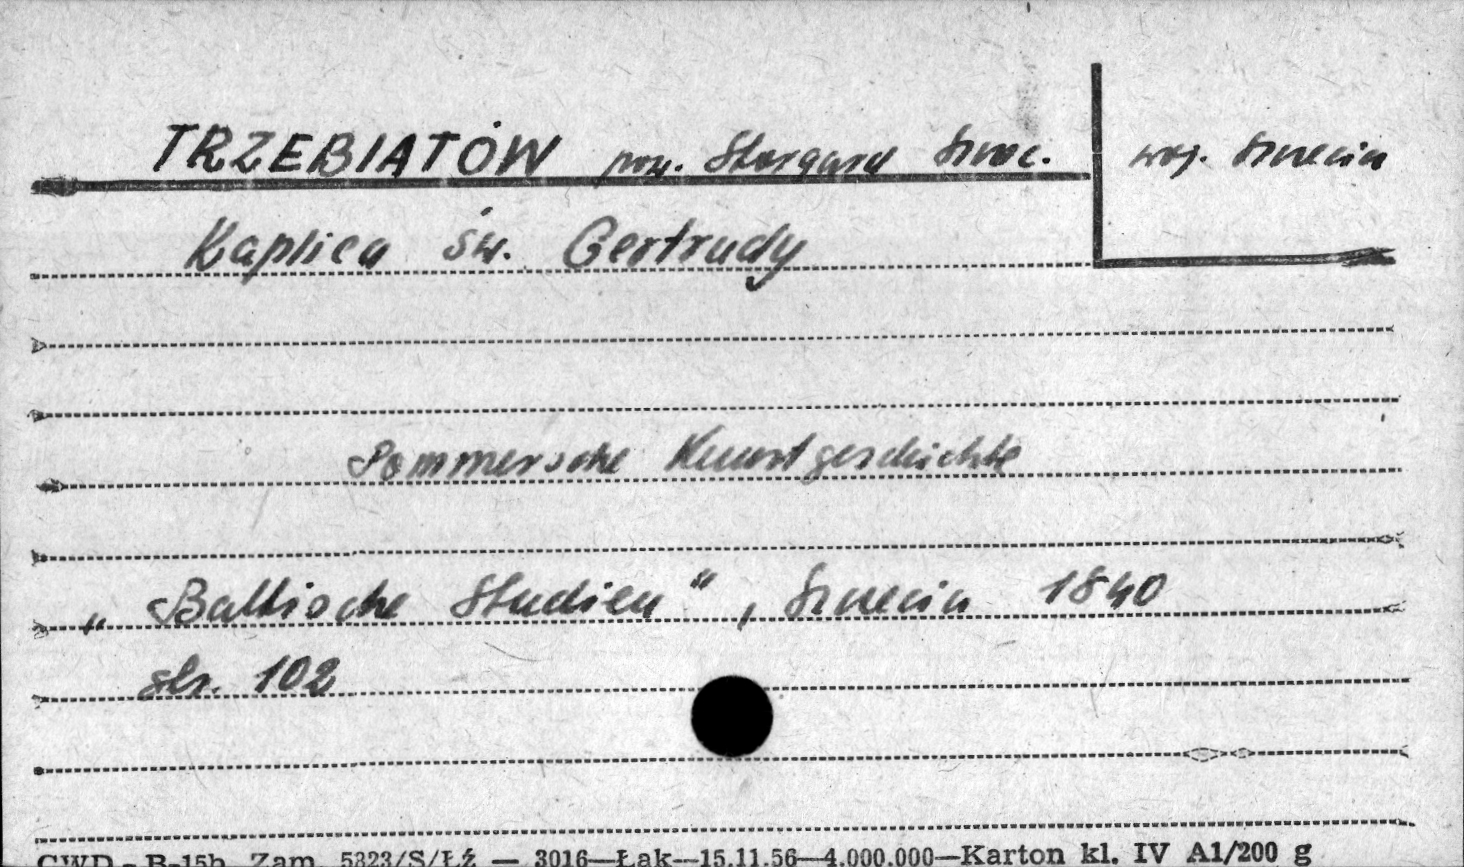 TRZEBIATÓW pow. Stargard Szcz. woj. Szczecin
Kaplica św. Gertrudy
Pommersche Kunstgeschichte
„Baltische Studien", Szczecin 1840
str. 102
CWD - B-15b Zam. 5323/S/Łź — 3016—Łąk—15.11.56—4.000.000—Karton kl. IV A1/200 g